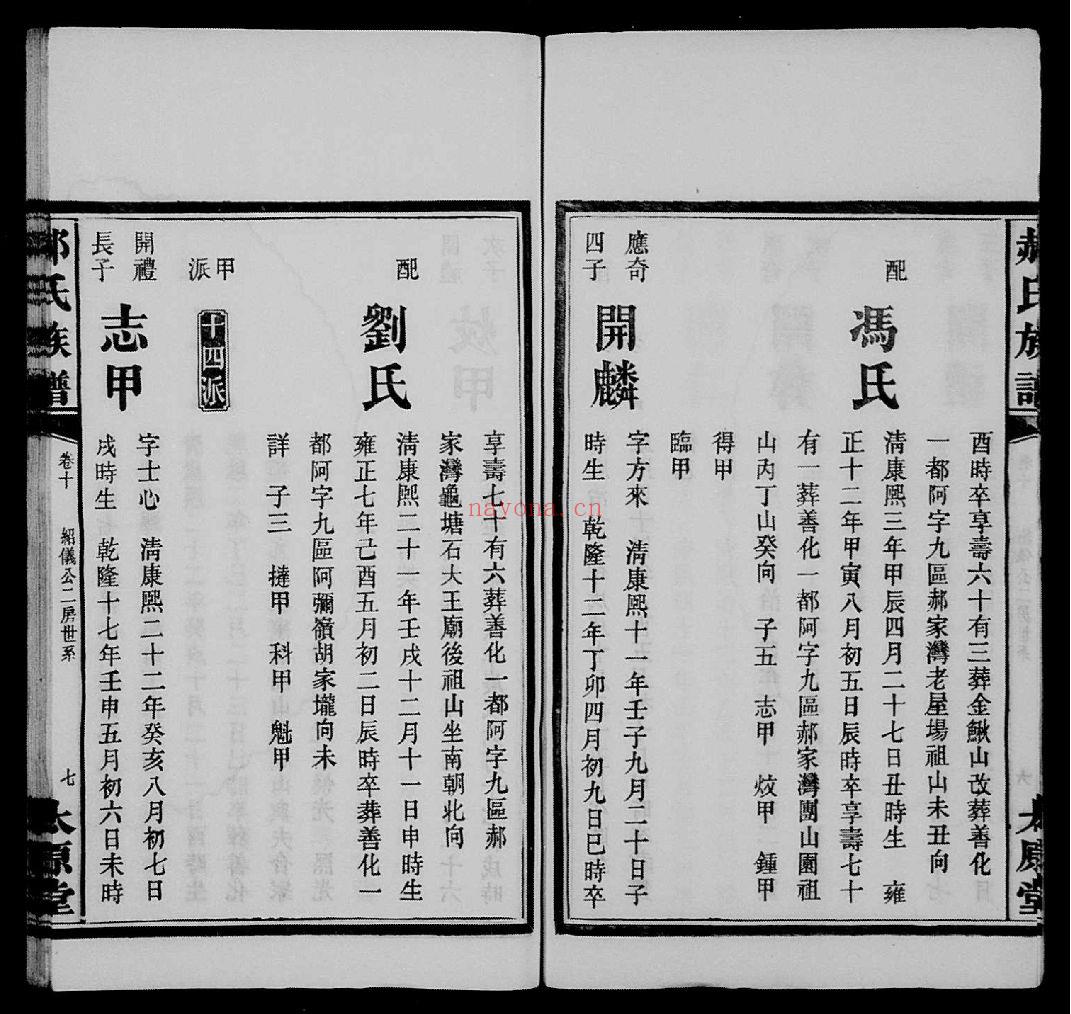 郝氏族譜
太原堂
酉時卒享壽六十有三葬金鰍山改葬善化
一都阿字九區郝家灣老屋場祖山未丑向
配
馮氏
清康熙三年甲辰四月二十七日丑時生 雍
正十二年甲寅八月初五日辰時卒享壽七十
有一葬善化一都阿字九區郝家灣團山園祖
山內丁山癸向 子五 志甲 烄甲 鍾甲
得甲
臨甲
應奇
四子
開麟
字方來 清康熙十一年壬子九月二十日子
時生 乾隆十二年丁卯四月初九日巳時卒
享壽七十有六葬善化一都阿字九區郝
家灣龜塘石大王廟後祖山坐南朝北向
配
劉氏
清康熙二十一年壬戌十二月十一日申時生
雍正七年己酉五月初二日辰時卒葬善化一
都阿字九區阿彌嶺胡家壠向未
詳 子三 撻甲 科甲 魁甲
甲
派
十四派
開禮
長子
志甲
字士心 清康熙二十二年癸亥八月初七日
戌時生 乾隆十七年壬申五月初六日未時
郝氏族譜
卷十
紹儀公二房世系
七
太原堂
nayona.cn